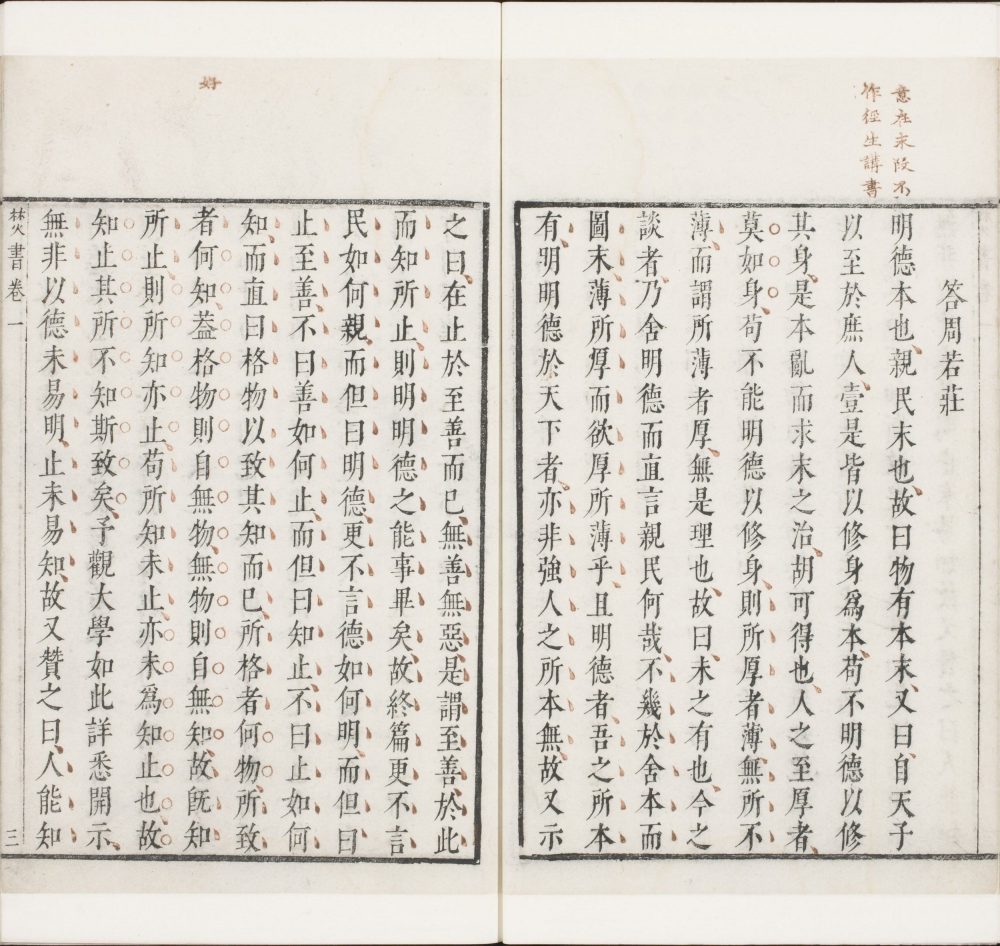 意在末段不
作經生講書
答周若莊
明德本也、親民末也、故曰物有本末、又曰、自天子
以至於庶人、壹是皆以修身爲本、苟不明德以修
其身、是本亂而求末之治、胡可得也、人之至厚者、
莫如身、苟不能明德以修身、則所厚者薄、無所不
薄、而謂所薄者厚、無是理也、故曰未之有也、今之
談者、乃舍明德而直言親民何哉、不幾於舍本而
圖末、薄所厚而欲厚所薄乎、且明德者、吾之所本
有、明明德於天下者、亦非強人之所本無、故又示
好
之曰、在止於至善而已、無善無惡、是謂至善、於此
而知所止、則明明德之能事畢矣、故終篇更不言
民如何親、而但曰明德、更不言德如何明、而但曰
止至善、不曰善如何止、而但曰知止、不曰止如何
知、而直曰格物以致其知而已、所格者何物、所致
者何知、葢格物則自無物、無物則自無知、故旣知
所止、則所知亦止、苟所知未止、亦未爲知止也、故
知止其所不知、斯致矣、予觀大學如此詳悉開示、
無非以德未易明、止未易知、故又贊之曰、人能知
焚書卷一
三